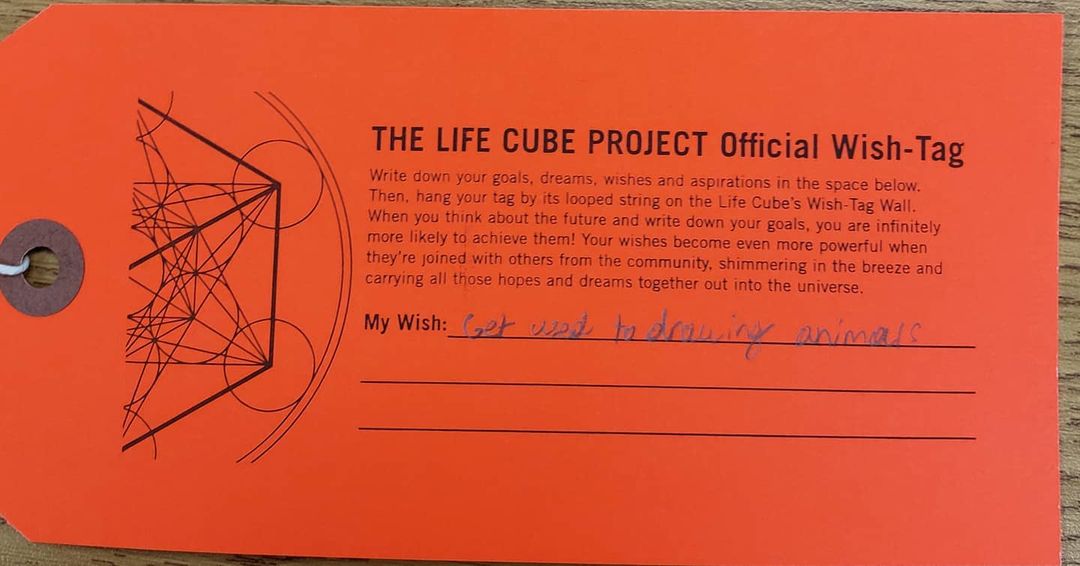 THE LIFE CUBE PROJECT Official Wish-Tag
Write down your goals, dreams, wishes and aspirations in the space below.
Then, hang your tag by its looped string on the Life Cube's Wish-Tag Wall.
When you think about the future and write down your goals, you are infinitely
more likely to achieve them! Your wishes become even more powerful when
they're joined with others from the community, shimmering in the breeze and
carrying all those hopes and dreams together out into the universe.
My Wish: Get used to drawing animals